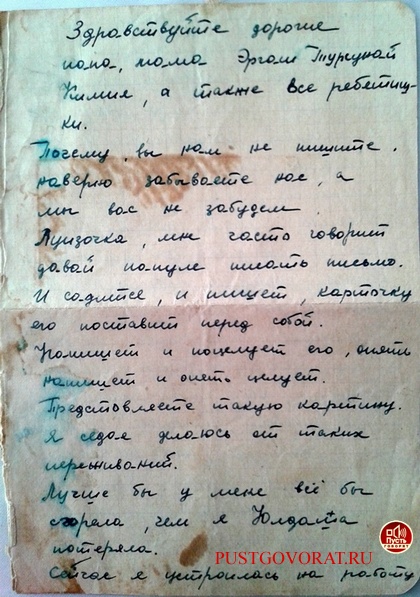 Здравствуйте дорогие
папа, мама Эргаш Турсунай
Кимия, а также все ребятиш-
ки.
Почему вы нам не пишите.
наверно забываете нас, а
мы вас не забудем
Луизочка, мне часто говорит
давай папуле писать письмо.
И садится, и пишет, карточку
его поставит перед собой.
и поцелует его, опять
напишет и опеть целует.
Предстовляете такую картину.
Я седая делаюсь от таких
переживаний.
Лучше бы у мене всё бы
сгорела, чем я Юлдаша
потеряла.
Сейчас я устроилась на работу
ПУСТЬ
ГОВОРЯТ
PUSTGOVORAT.RU